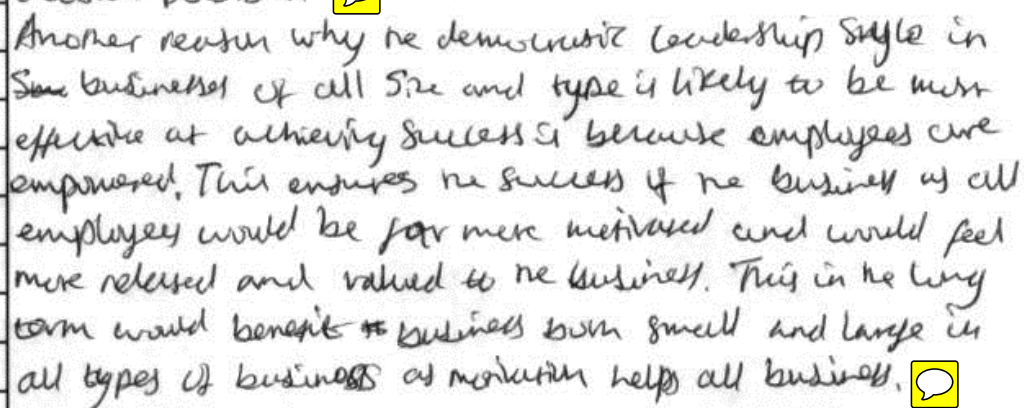 Another reason why the democratic leadership style in
businesses of all size and type is likely to be most
effective at achieving success is because employees are
empowered. This ensures the success of the business as all
employees would be far more motivated and would feel
more related and valued to the business. This in the long
term would benefit business both small and large in
all types of business as motivation helps all business.